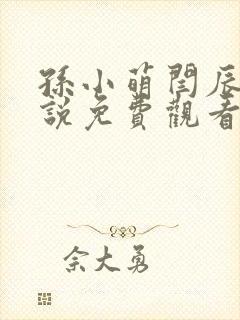 孫小萌閆辰
說免費觀看
佘大勇